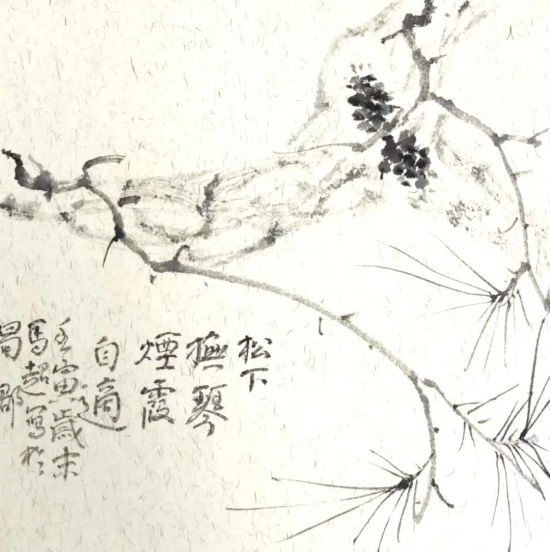 松下
撫琴
煙霞
自適
壬寅歲末
馬超寫於
蜀郡